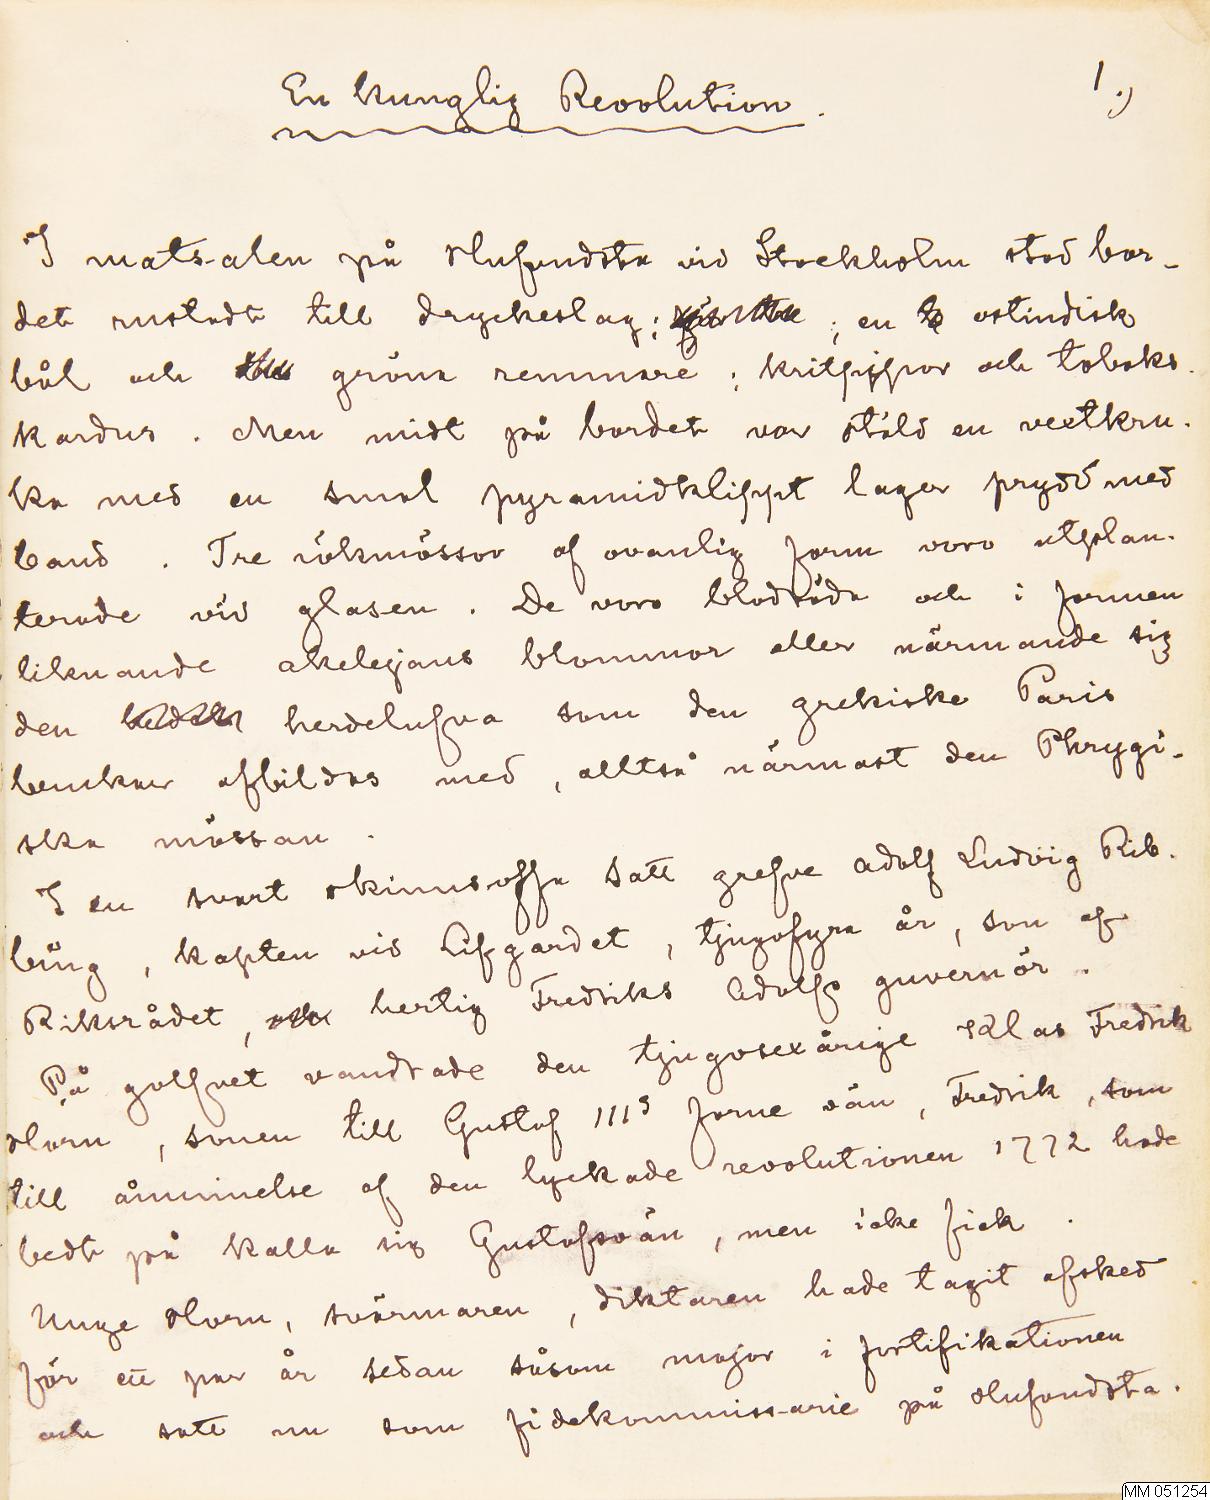 En Kunglig Revolution.
1.)
I matsalen på Hufvudsta vid Stockholm stod bor-
det rustadt till dryckeslag; ; en ostindisk
bål och gröna remmare; kritpipor och tobaks-
kardus. Men midt på bordet var stäld en vextkru-
ka med en smal pyramidklippt lager prydd med
band. Tre rökmössor af ovanlig form voro utplan-
terade vid glasen. De voro blodröda och i formen
liknande akelejans blommor eller närmande sig
den herdelufva som den grekiske Paris
brukar afbildas med, alltså närmast den Phrygi-
ska mössan.
I en svart skinnsoffa satt grefve Adolf Ludvig Rib-
bing, kapten vid Lifgardet, tjugofyra år, son af
Riksrådet, hertig Fredriks Adolfs guvernör.
På golfvet vandrade den tjugosexårige Klas Fredrik
Horn, sonen till Gustaf IIIs forne vän, Fredrik, som
till åminnelse af den lyckade revolutionen 1772 hade
bedt på kalla sig Gustafsvän, men icke fick.
Unge Horn, svärmaren, diktaren hade tagit afsked
för ett par år sedan såsom major i fortifikationen
och satt nu som fidekommissarie på Hufvudsta.
MM 051254